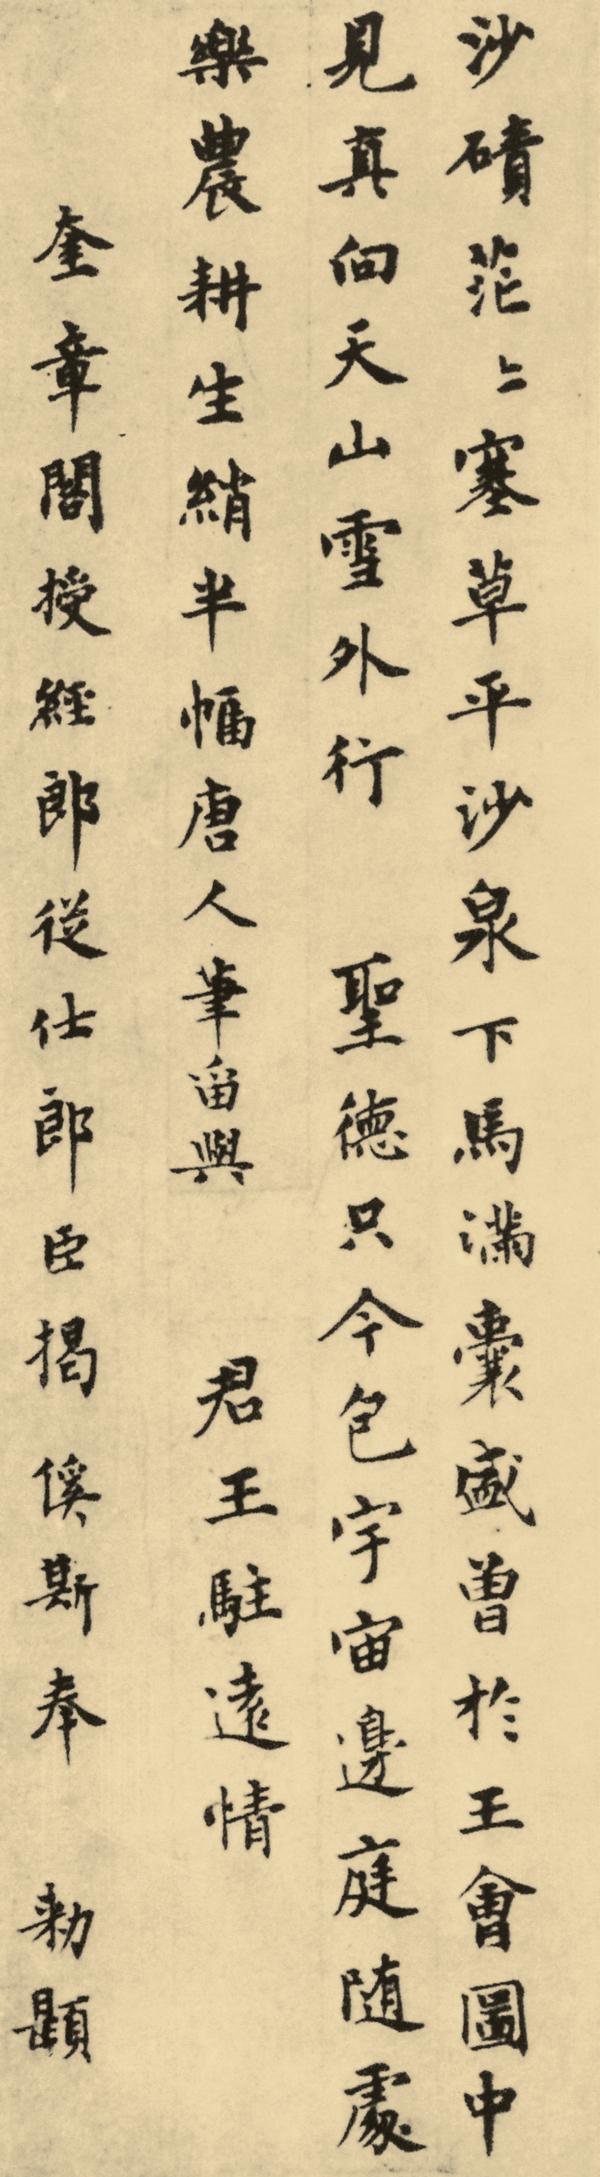 沙磧茫〻塞草平沙泉下馬滿囊盛曾於王會圖中
見真向天山雪外行　聖德只今包宇宙邊庭随處
樂農耕生綃半幅唐人筆畱與　君王駐遠情
奎章閣授經郎從仕郎臣揭傒斯奉　勑題